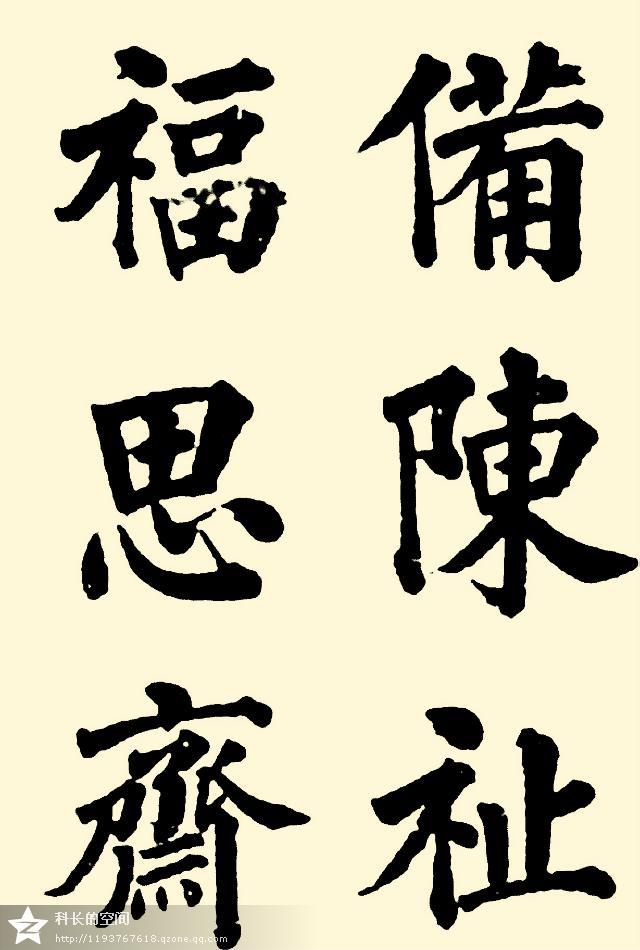 備陳祉
福思齋
科长的空间
http://1193767618.qzone.qq.com